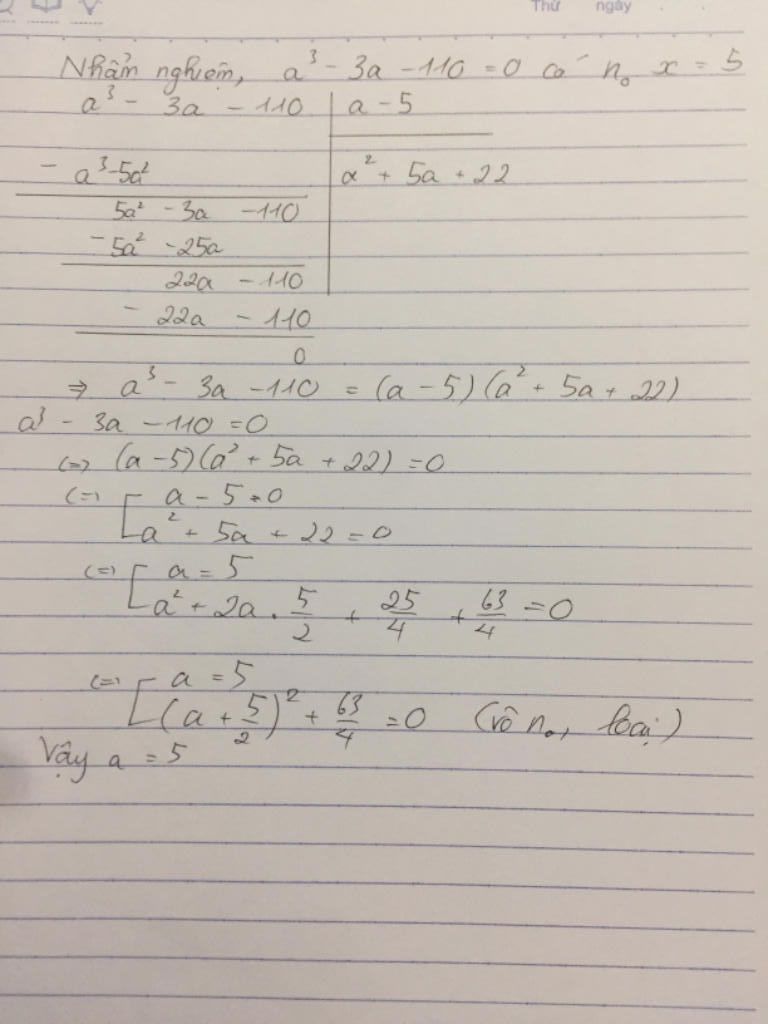 Thứ ngày
Nhẩm nghiệm, a³ - 3a - 110 = 0 có n₀ x = 5
a³ - 3a - 110 | a - 5
- a³ - 5a² a² + 5a + 22
5a² - 3a - 110
- 5a² - 25a
22a - 110
- 22a - 110
0
⇒ a³ - 3a - 110 = (a - 5)(a² + 5a + 22)
a³ - 3a - 110 = 0
(=) (a - 5)(a² + 5a + 22) = 0
(=) [ a - 5 = 0
a² + 5a + 22 = 0
(=) [ a = 5
a² + 2a . 5/2 + 25/4 + 63/4 = 0
(=) [ a = 5
(a + 5/2)² + 63/4 = 0 (vô n₀, loại)
Vậy a = 5